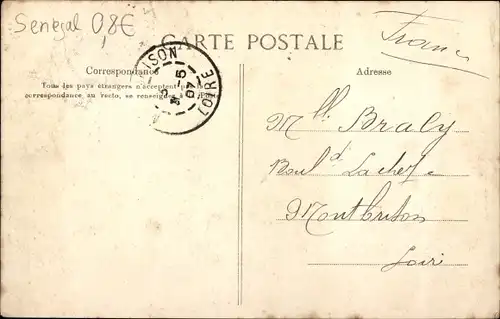 Senegal 0,8€
CARTE POSTALE
France
Correspondance
Tous les pays étrangers n'acceptent pas
correspondance au recto, se renseigner à la
Adresse
ISON
3-5
07
IRE (0)
Mlle Braly
Boul d Lachez e
Montbrison
Loire